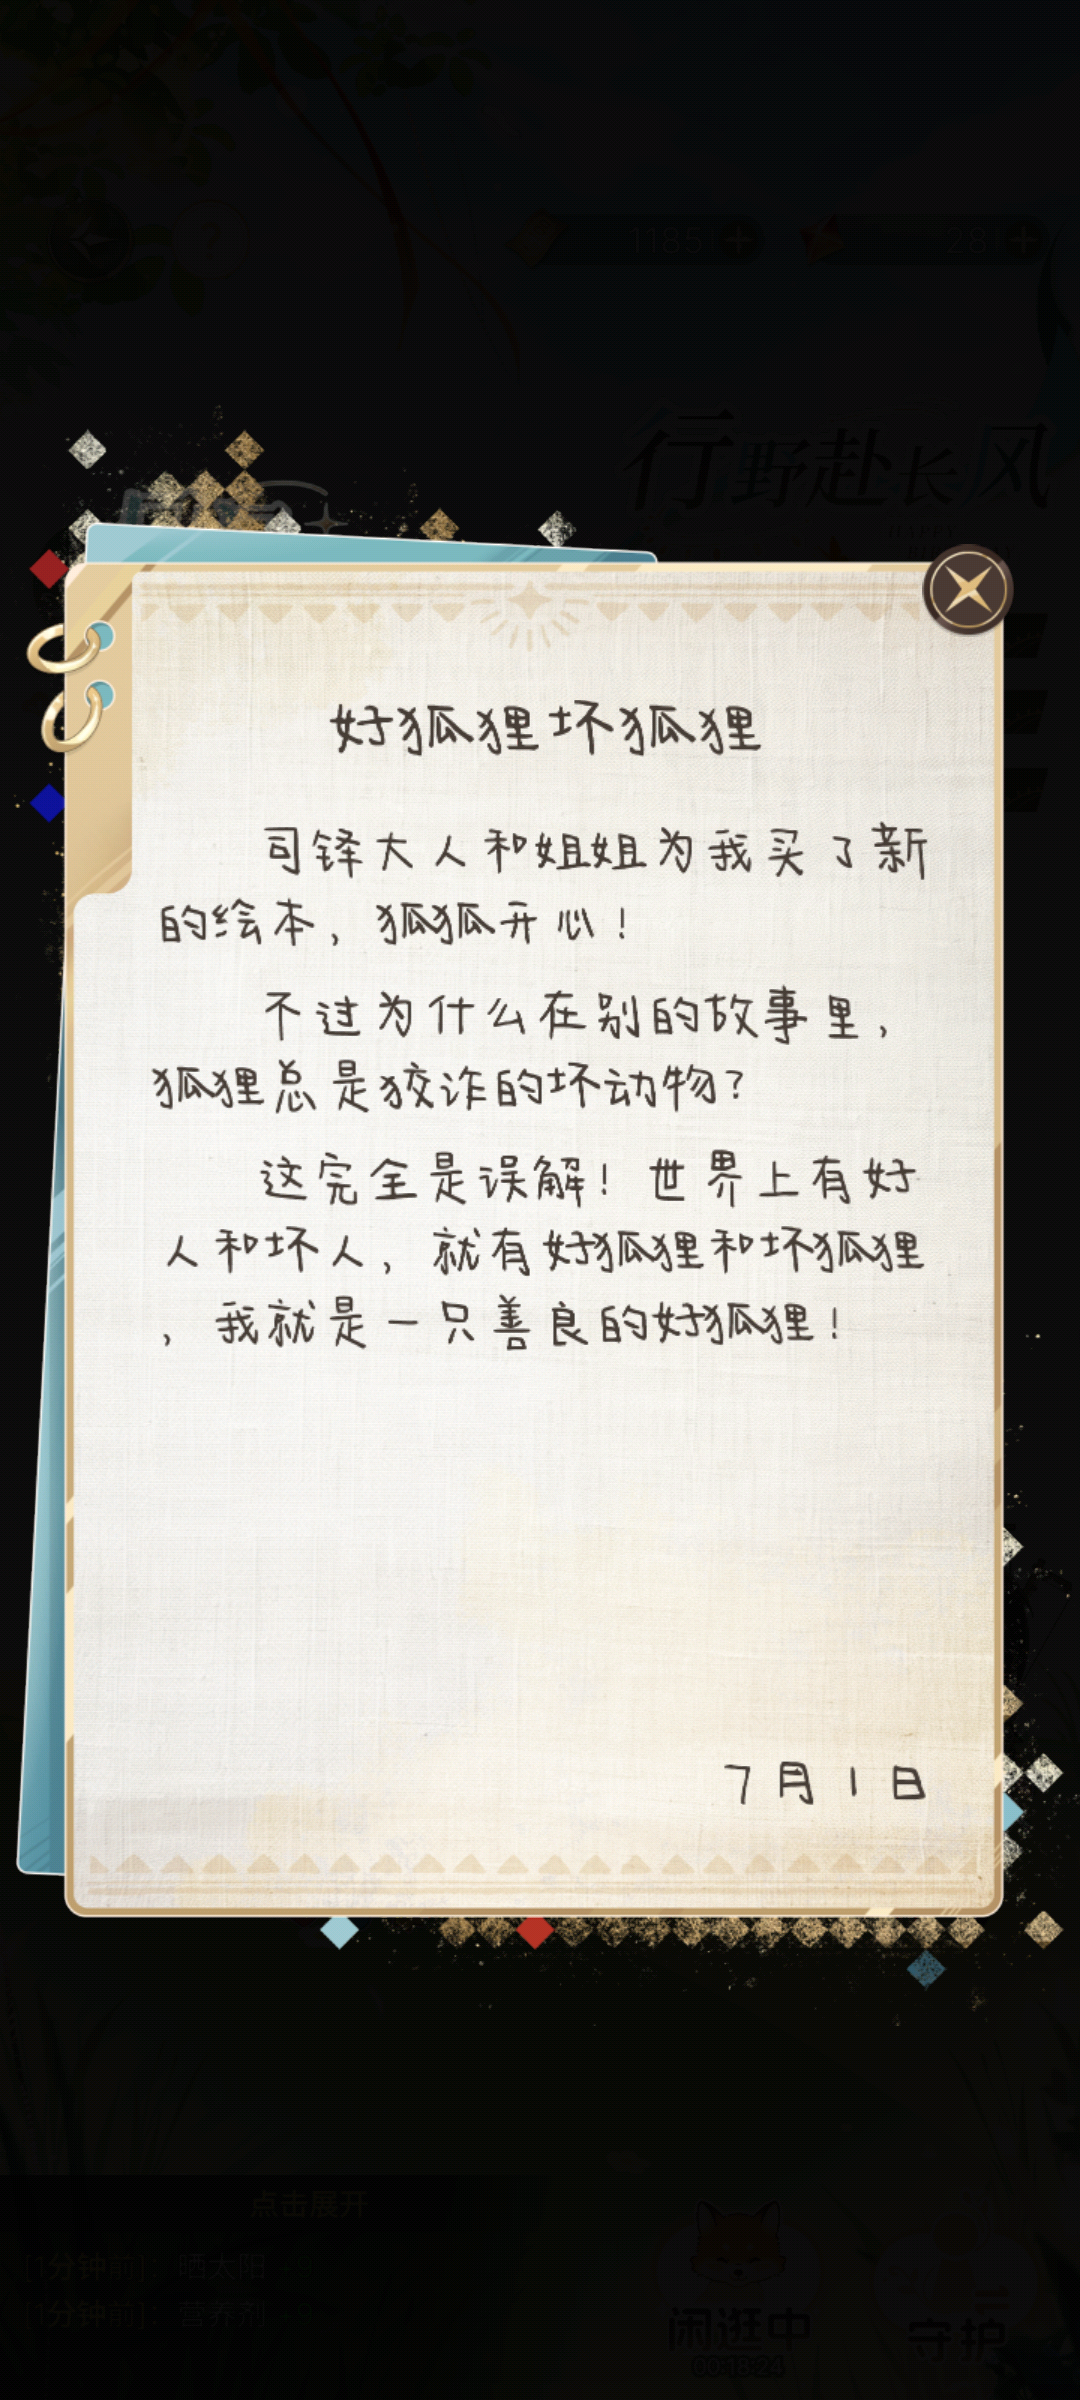 1185
28
行野赴长风
好狐狸坏狐狸
司铎大人和姐姐为我买了新
的绘本，狐狐开心！
不过为什么在别的故事里，
狐狸总是狡诈的坏动物？
这完全是误解！世界上有好
人和坏人，就有好狐狸和坏狐狸
，我就是一只善良的好狐狸！
7月1日
点击展开
[1分钟前]：晒太阳
[1分钟前]：营养剂
闲逛中
00:18:24
守护